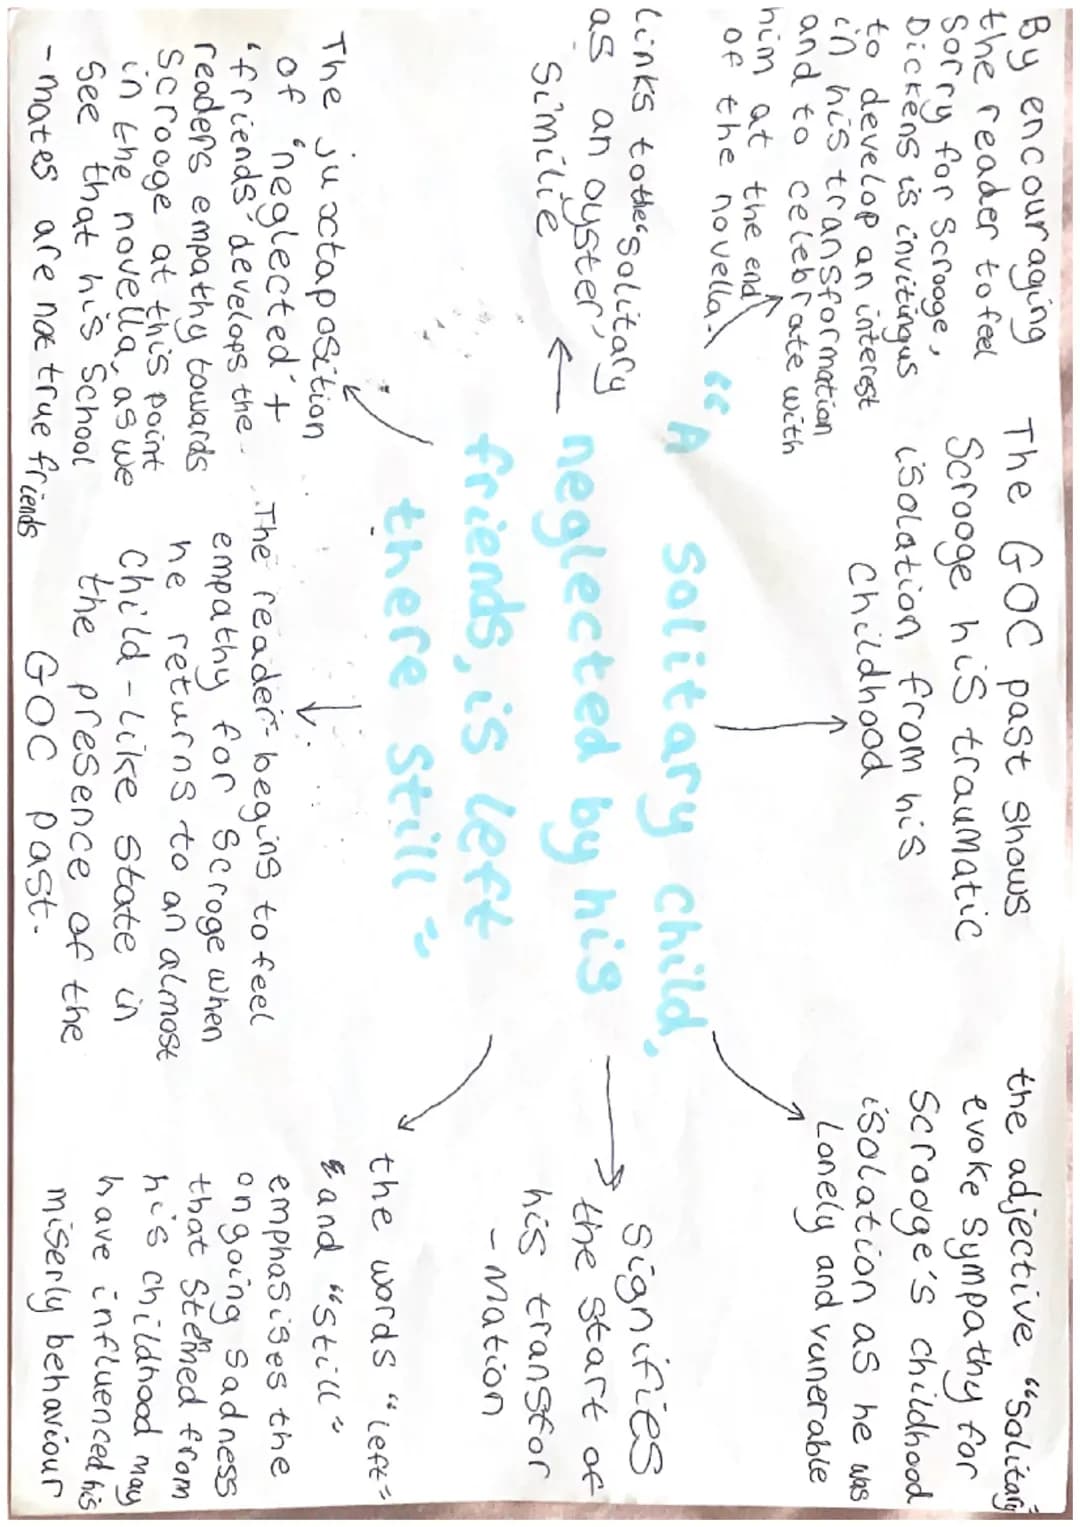 By encouragaing
the reader to feel
Sorry for Scrooge,
Dickens is inviting us
to develop an interest
in his transformation
and to celebrate with
him at the end
of the novella.
The GOC past shows
Scrooge his traumatic
isolation from his
Childhood
the adjective "Solitary"
evoke Sympathy for
Scrooge's childhood
isolation as he was
Lonely and vunerable
Links to the 'Solitary
as an oyster,'
Similie
"A solitary child,
neglected by his
friends, is left
there still"
Signifies
the start of
his transfor
-mation
The juxtaposition
of 'neglected' +
'friends' develops the
readers empathy towards
Scrooge at this point
in the novella, as we
See that his School
-mates are not true friends
The reader begins to feel
empathy for Scroge when
he returns to an almost
Child-Like State in
the presence of the
GOC past.
the words "left"
and "still"
emphasises the
ongoing Sadness
that stemed from
his childhood may
have influenced his
miserly behaviour